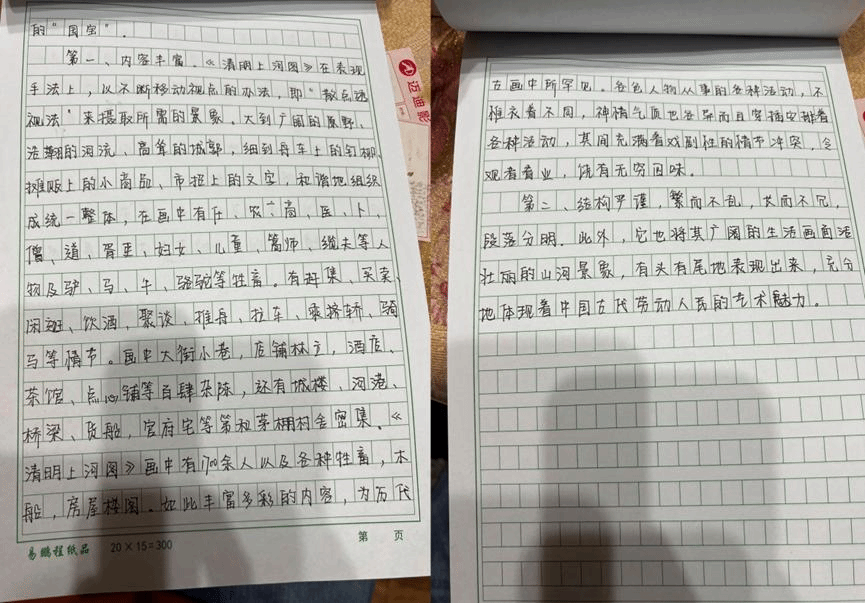 的“国宝”.
第一、内容丰富。《清明上河图》在表现
手法上，以不断移动视点的办法，即“散点透
视法”来摄取所需的景象。大到广阔的原野、
浩瀚的河流、高耸的城郭，细到舟车上的钉铆、
摊贩上的小商品、市招上的文字，和谐地组织
成统一整体，在画中有仕、农、商、医、卜、
僧、道、胥吏、妇女、儿童、篙师、缆夫等人
物及驴、马、牛、骆驼等牲畜。有赶集、买卖、
闲逛、饮酒、聚谈、推舟、拉车、乘轿、骑
马等情节。画中大街小巷，店铺林立，酒店、
茶馆、点心铺等百肆杂陈，还有城楼、河港、
桥梁、货船，官府宅等第和茅棚村舍密集。《
清明上河图》画中有1700余人以及各种牲畜，木
船，房屋楼阁。如此丰富多彩的内容，为历代
易鹏程纸品 20×15=300 第 页
迈迪影
古画中所罕见。各色人物从事的各种活动，不
惟衣着不同，神情气质也各异而且穿插安排着
各种活动，其间充满着戏剧性的情节冲突，令
观者看业，饶有无穷回味。
第二、结构严谨，繁而不乱，长而不冗，
段落分明。此外，它也将其广阔的生活画面
壮丽的山河景象，有头有尾地表现出来，充分
地体现着中国古代劳动人民的艺术魅力。